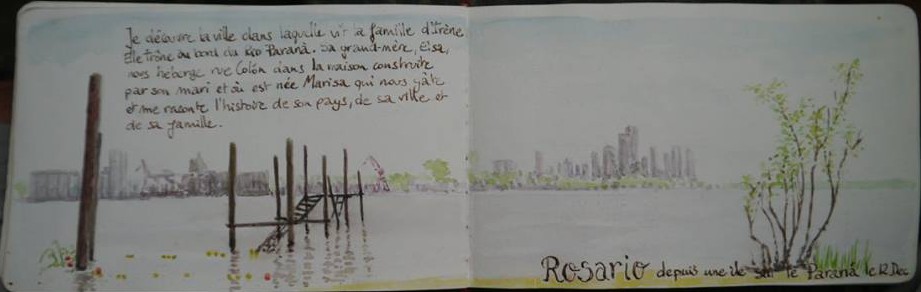 Je découvre la ville dans laquelle vit la famille d'Irène
Elle trône au bord du Rio Paranà. Sa grand-mère, Elsa,
nous héberge rue Colón dans la maison construite
par son mari et où est née Marisa qui nous gâte
et me raconte l'histoire de son pays, de sa ville et
de sa famille.
Rosario depuis une île sur le Paranà le 12 Dec